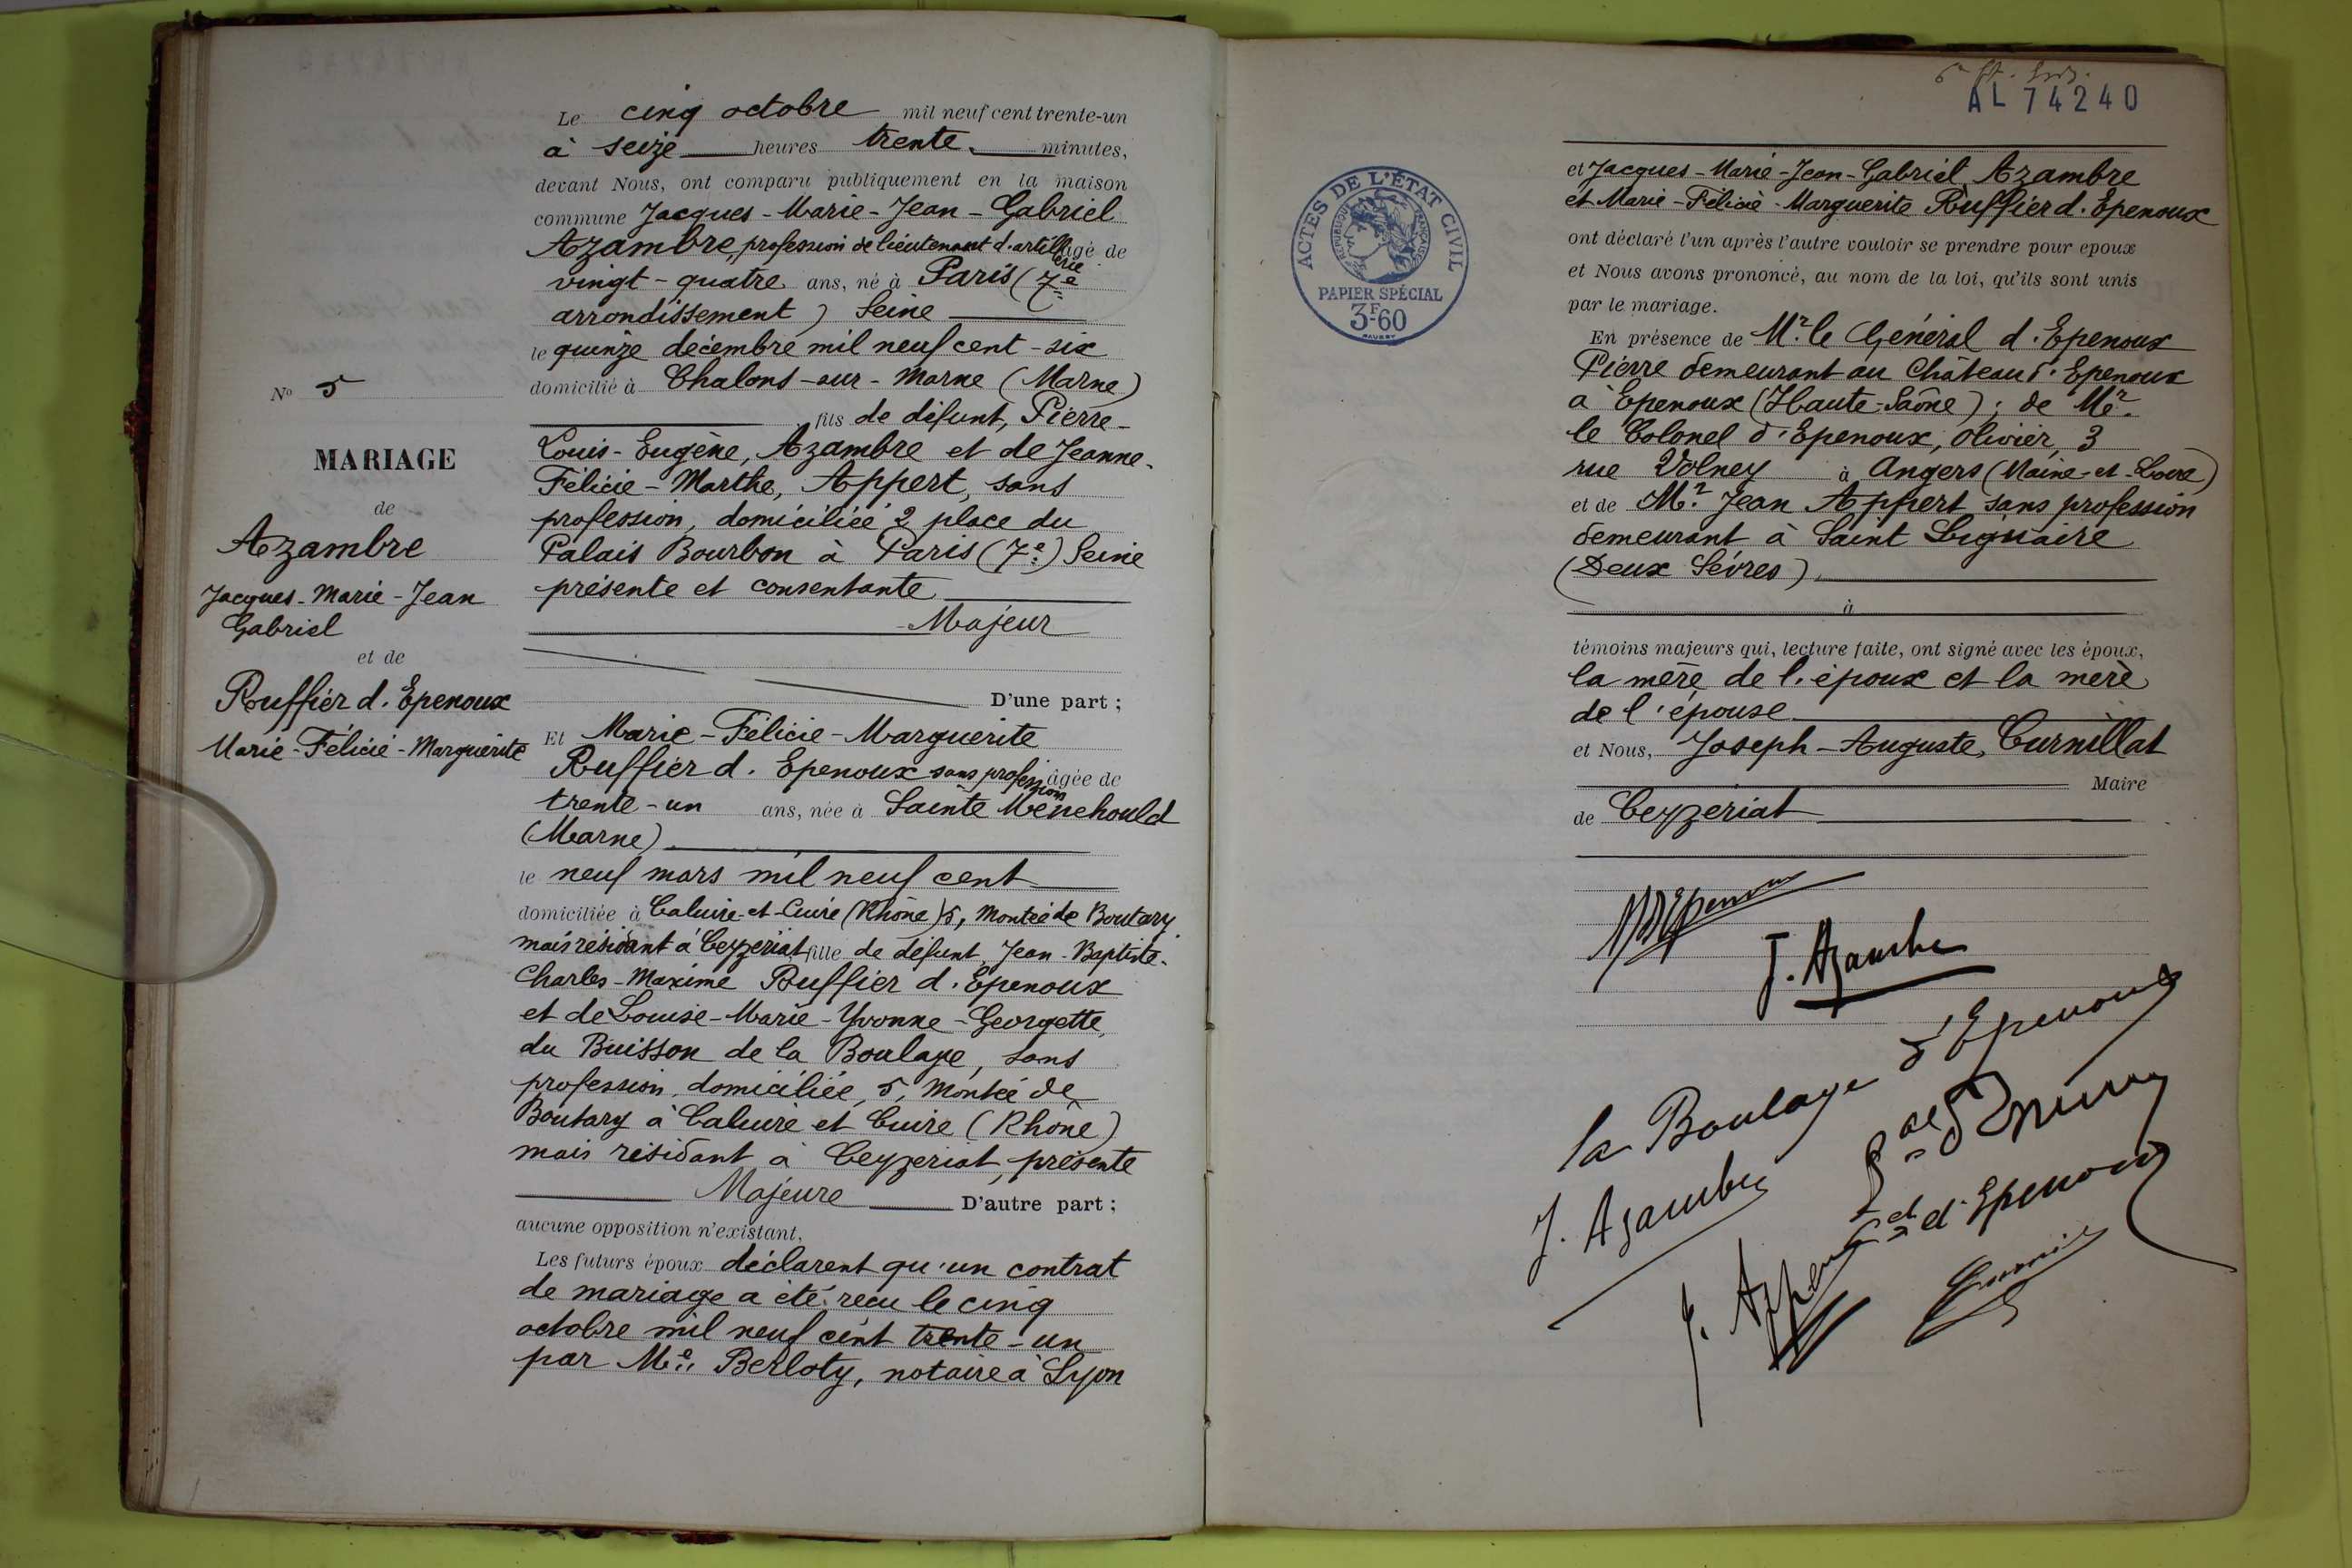 Le cinq octobre mil neuf cent trente-un
à seize heures trente minutes,
devant Nous, ont comparu publiquement en la maison
commune Jacques-Marie-Jean-Gabriel
Azambre, profession de lieutenant d'artillerie âgé de
vingt-quatre ans, né à Paris (7e
arrondissement) Seine
le quinze décembre mil neuf cent-six
domicilié à Chalons-sur-Marne (Marne)
fils de défunt, Pierre-
Louis-Eugène, Azambre et de Jeanne-
Félicie-Marthe, Appert, sans
profession, domiciliée 2 place du
Palais Bourbon à Paris (7e) Seine
présente et consentante
Majeur
D'une part ;
Et Marie-Félicie-Marguerite
Ruffier d'Epenoux sans profession âgée de
trente-un ans, née à Sainte Menehould
(Marne)
le neuf mars mil neuf cent
domiciliée à Caluire-et-Cuire (Rhône) 5, Montée de Boutary
mais résidant à Ceyzeriat fille de défunt, Jean-Baptiste-
Charles-Maxime Ruffier d'Epenoux
et de Louise-Marie-Yvonne-Georgette,
du Buisson de la Boulaye, sans
profession, domiciliée, 5, Montée de
Boutary à Caluire et Cuire (Rhône)
mais résidant à Ceyzeriat, présente
Majeure D'autre part ;
aucune opposition n'existant,
Les futurs époux déclarent qu'un contrat
de mariage a été reçu le cinq
octobre mil neuf cent trente-un
par Me Berloty, notaire à Lyon
No 5
MARIAGE
de
Azambre
Jacques-Marie-Jean
Gabriel
et de
Ruffier d'Epenoux
Marie-Félicie-Marguerite
AL 74240
ACTES DE L'ÉTAT CIVIL
RÉPUBLIQUE FRANÇAISE
PAPIER SPÉCIAL
3F60
et Jacques-Marie-Jean-Gabriel Azambre
et Marie-Félicie-Marguerite Ruffier d'Epenoux
ont déclaré l'un après l'autre vouloir se prendre pour epoux
et Nous avons prononcé, au nom de la loi, qu'ils sont unis
par le mariage.
En présence de Mr le Général d'Epenoux
Pierre demeurant au Château d'Epenoux
à Epenoux (Haute-Saône); de Mr
le Colonel d'Epenoux, Olivier, 3
rue Volney à Angers (Maine-et-Loire)
et de Mr Jean Appert sans profession
demeurant à Saint Liguaire
(Deux Sévres)
à
témoins majeurs qui, lecture faite, ont signé avec les époux,
la mère de l'époux et la mère
de l'épouse
et Nous, Joseph-Auguste, Curnillat
Maire
de Ceyzeriat
J. Azambre
la Boulaye d'Epenoux
J. Azambre
d'Epenoux
J. Appert